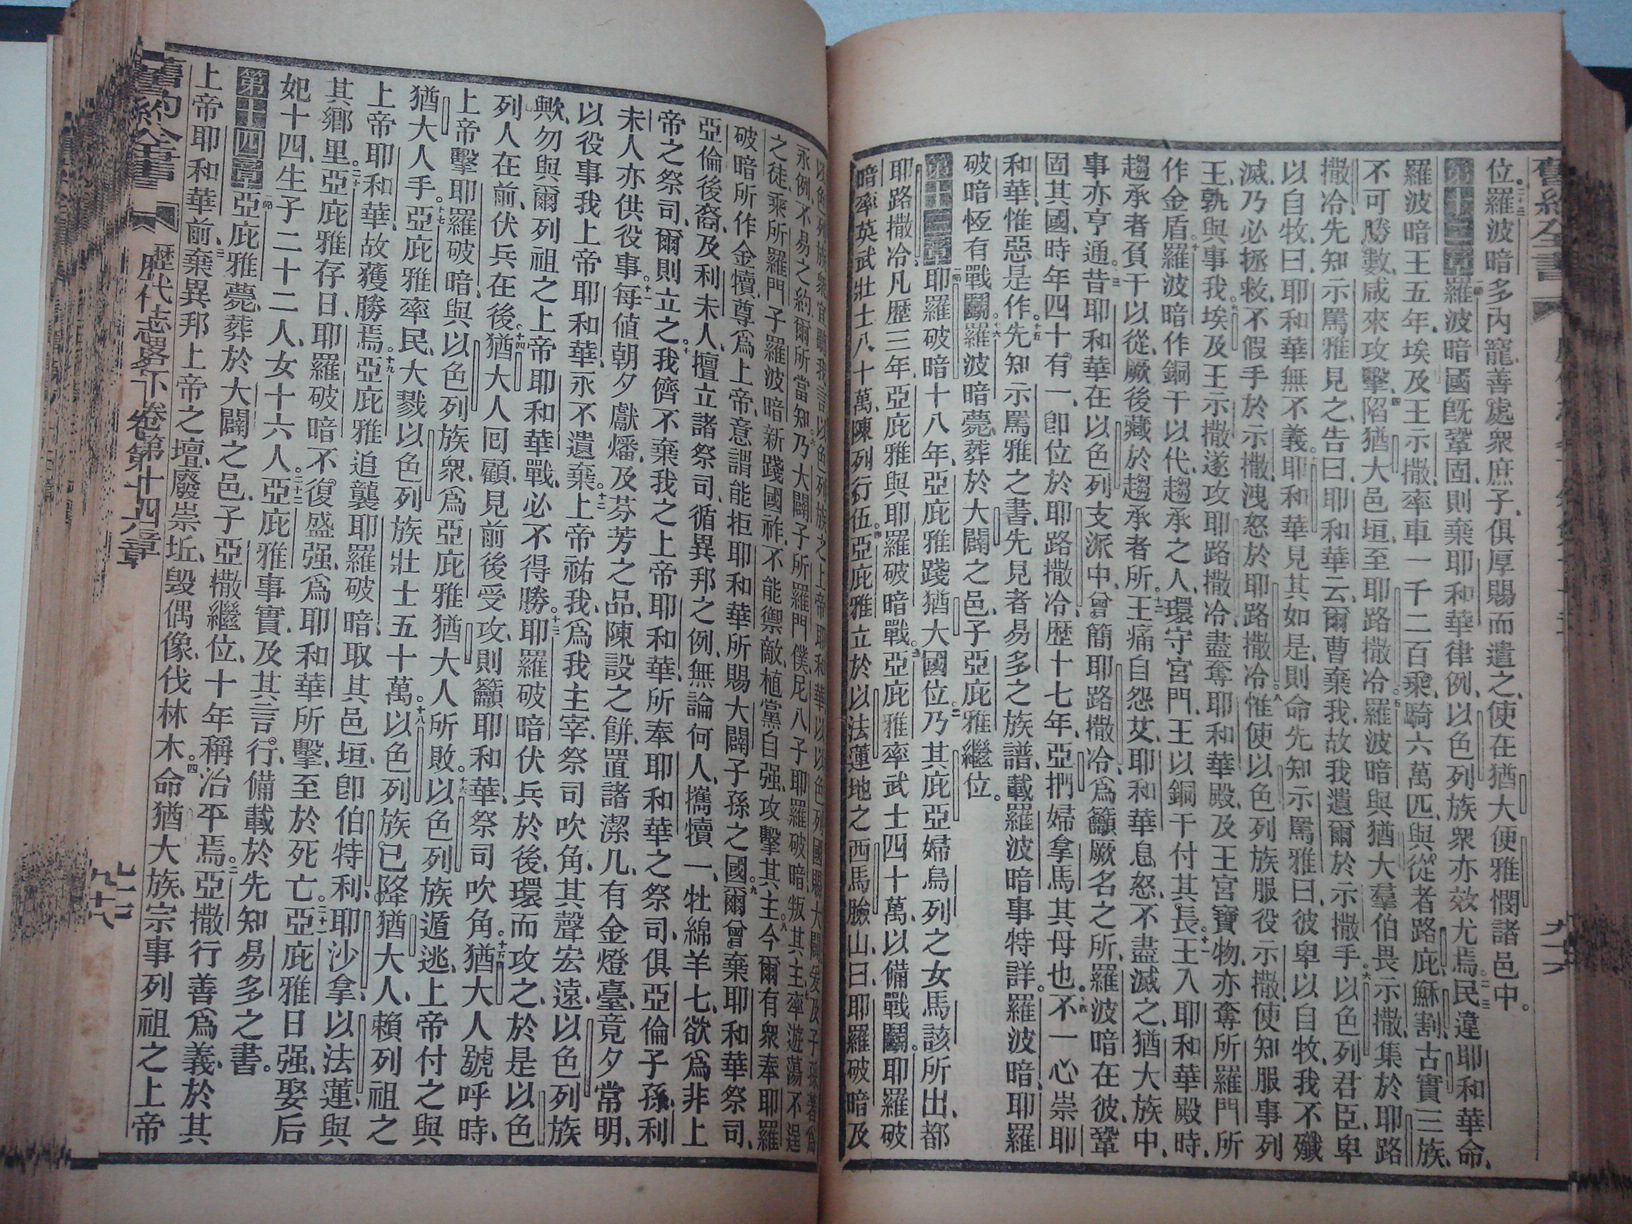 舊約全書
位羅波暗多內寵善處衆庶子俱厚賜而遣之使在猶大便雅憫諸邑中
羅波暗國旣鞏固則棄耶和華律例以色列族衆亦效尤焉民違耶和華命
羅波暗王五年埃及王示撒率車一千二百乘騎六萬匹與從者路庇穌割古實三族
不可勝數咸來攻擊陷猶大邑垣至耶路撒冷羅波暗與猶大羣伯畏示撒集於耶路
撒冷先知示罵雅見之告曰耶和華云爾曹棄我故我遺爾於示撒手以色列君臣卑
以自牧曰耶和華無不義耶和華見其如是則命先知示罵雅曰彼卑以自牧我不殲
滅乃必拯救不假手於示撒洩怒於耶路撒冷惟使以色列族服役示撒使知服事列
王孰與事我埃及王示撒遂攻耶路撒冷盡奪耶和華殿及王宮寶物亦奪所羅門所
作金盾羅波暗作銅干以代趨承之人環守宮門王以銅干付其長王入耶和華殿時
趨承者負干以從厥後藏於趨承者所王痛自怨艾耶和華息怒不盡滅之猶大族中
事亦亨通昔耶和華在以色列支派中曾簡耶路撒冷爲籲厥名之所羅波暗在彼鞏
固其國時年四十有一卽位於耶路撒冷歷十七年亞捫婦拿馬其母也不一心崇耶
和華惟惡是作先知示罵雅之書先見者易多之族譜載羅波暗事特詳羅波暗耶羅
破暗恆有戰鬭羅波暗薨葬於大闢之邑子亞庇雅繼位
耶羅破暗十八年亞庇雅踐猶大國位乃其庇亞婦烏列之女馬該所出都
耶路撒冷凡歷三年亞庇雅與耶羅破暗戰亞庇雅率武士四十萬以備戰鬭耶羅破
暗率英武壯士八十萬陳列行伍亞庇雅立於以法蓮地之西馬臉山曰耶羅破暗及
永例不易之約爾所當知乃大闢子所羅門僕尼八子耶羅破暗叛其主率遊蕩不逞
之徒乘所羅門子羅波暗新踐國祚不能禦敵植黨自强攻擊其主今爾有衆奉耶羅
破暗所作金犢尊爲上帝意謂能拒耶和華所賜大闢子孫之國爾曾棄耶和華祭司
亞倫後裔及利未人擅立諸祭司循異邦之例無論何人攜犢一牡綿羊七欲爲非上
帝之祭司爾則立之我儕不棄我之上帝耶和華所奉耶和華之祭司俱亞倫子孫利
未人亦供役事每值朝夕獻燔及芬芳之品陳設之餅置諸潔几有金燈臺竟夕常明
以役事我上帝耶和華永不遺棄上帝祐我爲我主宰祭司吹角其聲宏遠以色列族
歟勿與爾列祖之上帝耶和華戰必不得勝耶羅破暗伏兵於後環而攻之於是以色
列人在前伏兵在後猶大人回顧見前後受攻則籲耶和華祭司吹角猶大人號呼時
上帝擊耶羅破暗與以色列族衆爲亞庇雅猶大人所敗以色列族遁逃上帝付之與
猶大人手亞庇雅率民大戮以色列族壯士五十萬以色列族已降猶大人賴列祖之
上帝耶和華故獲勝焉亞庇雅追襲耶羅破暗取其邑垣卽伯特利耶沙拿以法蓮與
其鄉里亞庇雅存日耶羅破暗不復盛强爲耶和華所擊至於死亡亞庇雅日强娶后
妃十四生子二十二人女十六人亞庇雅事實及其言行備載於先知易多之書
第十四章亞庇雅薨葬於大闢之邑子亞撒繼位十年稱治平焉亞撒行善爲義於其
上帝耶和華前棄異邦上帝之壇廢崇坵毀偶像伐林木命猶大族宗事列祖之上帝
舊約全書 歷代志畧下卷 第十四章